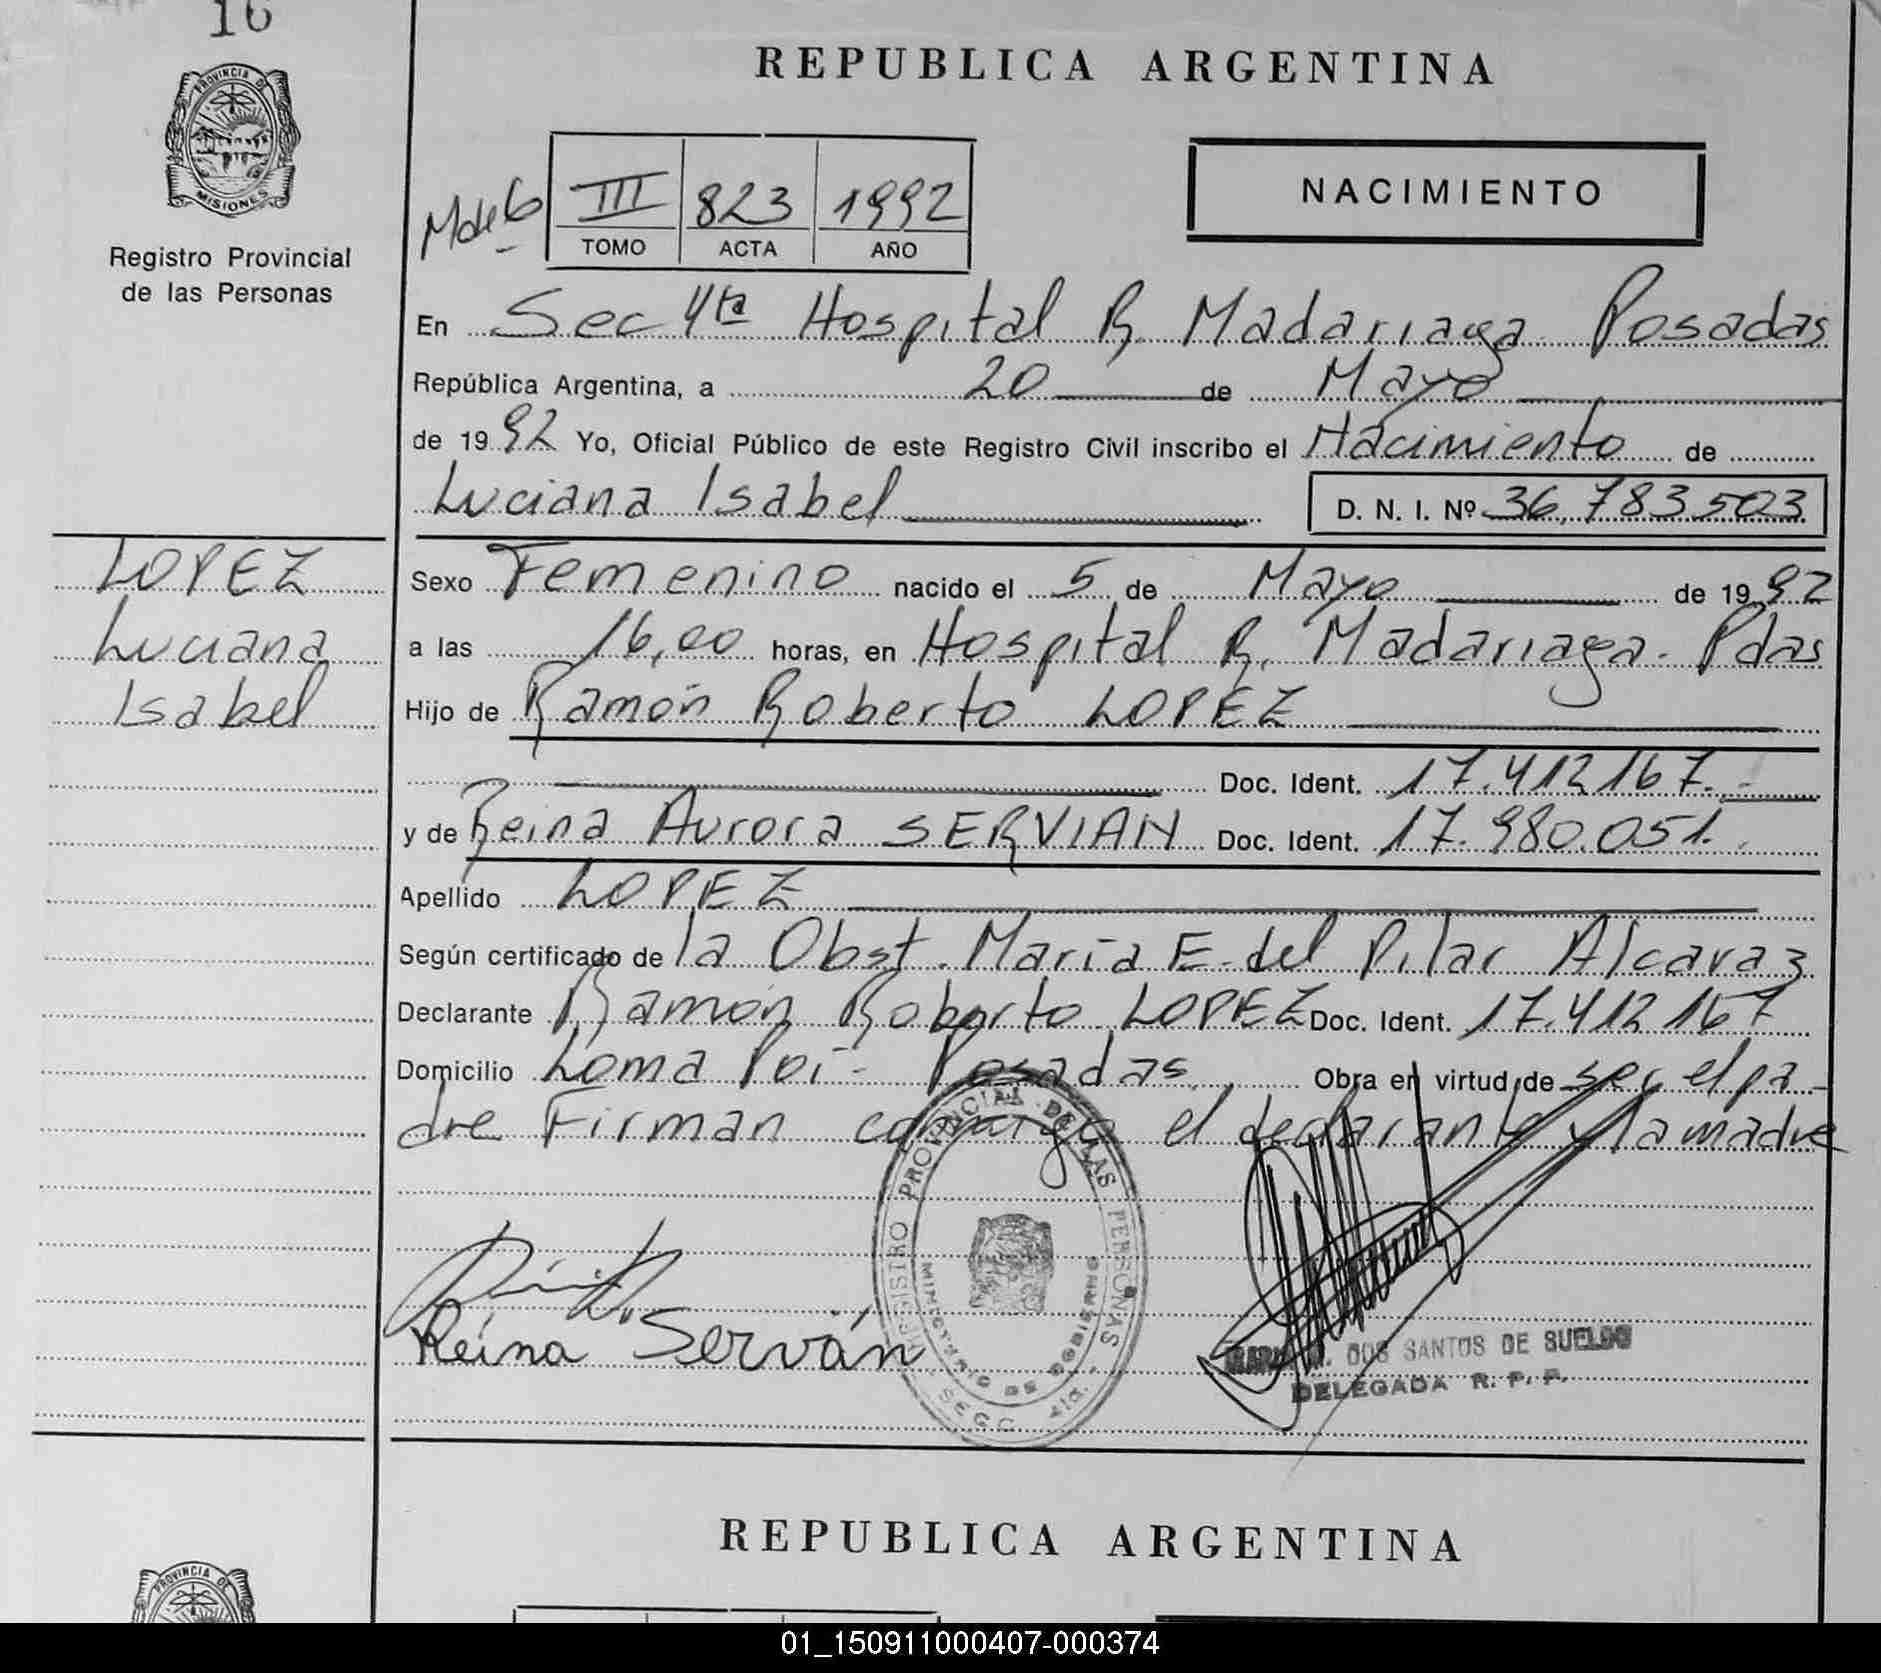 16
PROVINCIA DE
MISIONES
Registro Provincial
de las Personas
LOPEZ
Luciana
Isabel
REPUBLICA ARGENTINA
III 823 1992
TOMO ACTA AÑO
NACIMIENTO
En Sec 4ta Hospital R. Madariaga Posadas
República Argentina, a 20 de Mayo
de 1992 Yo, Oficial Público de este Registro Civil inscribo el Nacimiento de
Luciana Isabel D. N. I. Nº 36.783.503
Sexo Femenino nacido el 5 de Mayo de 1992
a las 16,00 horas, en Hospital R. Madariaga. Pdas
Hijo de Ramón Roberto LOPEZ
Doc. Ident. 17.412.167.-
y de Reina Aurora SERVIAN Doc. Ident. 17.980.051.
Apellido LOPEZ
Según certificado de la Obst. María E. del Pilar Alcaraz
Declarante Ramón Roberto LOPEZ Doc. Ident. 17.412.167
Domicilio Loma Poi - Posadas. Obra en virtud de ser el pa-
dre Firman conmigo el declarante y la madre
REGISTRO PROVINCIAL DE LAS PERSONAS
Reina Serván
DOS SANTOS DE SUELDO
DELEGADA R. P. P.
REPUBLICA ARGENTINA
PROVINCIA DE
01_150911000407-000374